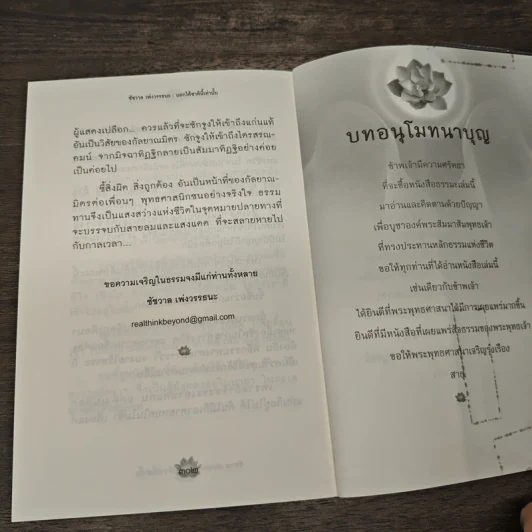 ชัชวาล เพ่งวรรธนะ : บอกได้ชาตินี้เท่านั้น
ผู้แสดงเปลือก... ควรแล้วที่จะชักจูงให้เข้าถึงแก่นแท้
อันเป็นวิสัยของกัลยาณมิตร ชักจูงให้เข้าถึงไตรสรณ-
คมน์ จากมิจฉาทิฏฐิกลายเป็นสัมมาทิฏฐิอย่างค่อย
เป็นค่อยไป
ชี้สิ่งผิด สิ่งถูกต้อง อันเป็นหน้าที่ของกัลยาณ-
มิตรต่อเพื่อนๆ พุทธศาสนิกชนอย่างจริงใจ ธรรม
ทานจึงเป็นแสงสว่างแห่งชีวิตในจุดหมายปลายทางที่
จะบรรจบกับสายลมและแสงแดด ที่จะสลายหายไป
กับกาลเวลา...
ขอความเจริญในธรรมจงมีแก่ท่านทั้งหลาย
ชัชวาล เพ่งวรรธนะ
realthinkbeyond@gmail.com
บทอนุโมทนาบุญ
ข้าพเจ้ามีความศรัทธา
ที่จะซื้อหนังสือธรรมะเล่มนี้
มาอ่านและคิดตามด้วยปัญญา
เพื่อบูชาองค์พระสัมมาสัมพุทธเจ้า
ที่ทรงประทานหลักธรรมแห่งชีวิต
ขอให้ทุกท่านที่ได้อ่านหนังสือเล่มนี้
เช่นเดียวกับข้าพเจ้า
ได้ยินดีที่พระพุทธศาสนาได้มีการเผยแพร่มากขึ้น
ยินดีที่มีหนังสือที่เผยแพร่สื่อธรรมของพระพุทธเจ้า
ขอให้พระพุทธศาสนาเจริญรุ่งเรือง
สาธุ